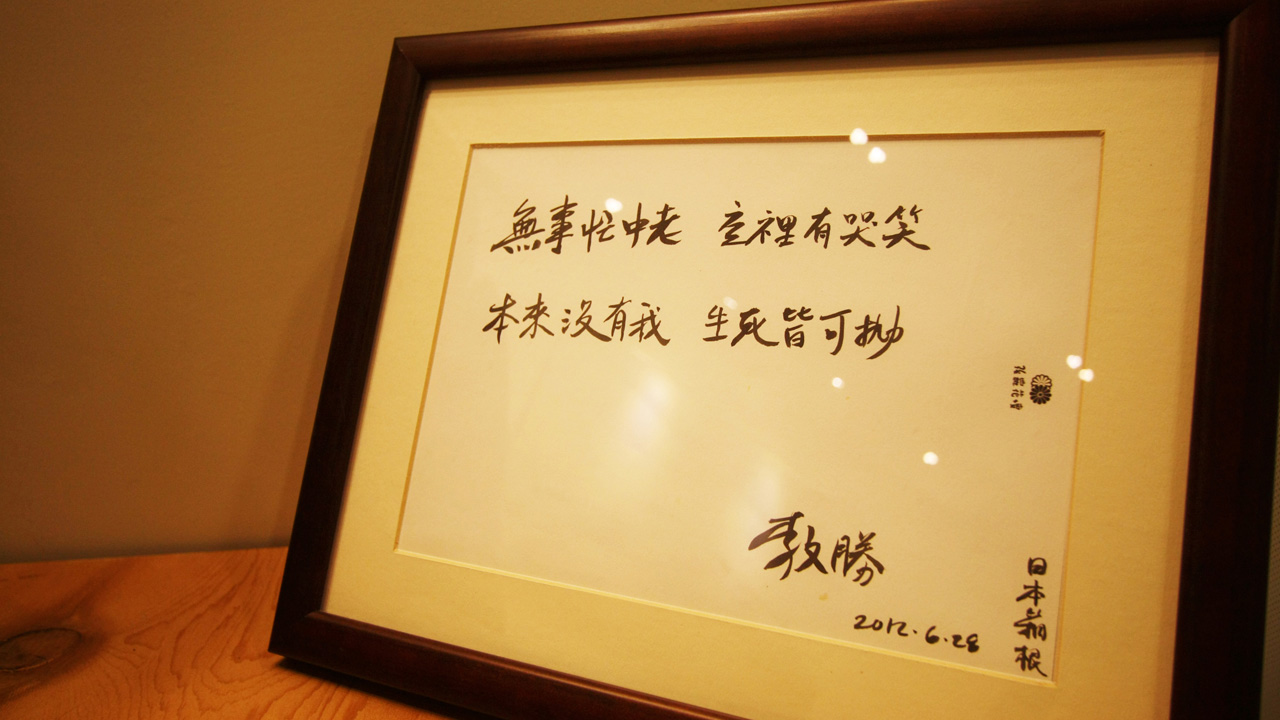 無事忙中老 空裡有哭笑
本來沒有我 生死皆可拋
教勝
2012.6.28
日本箱根